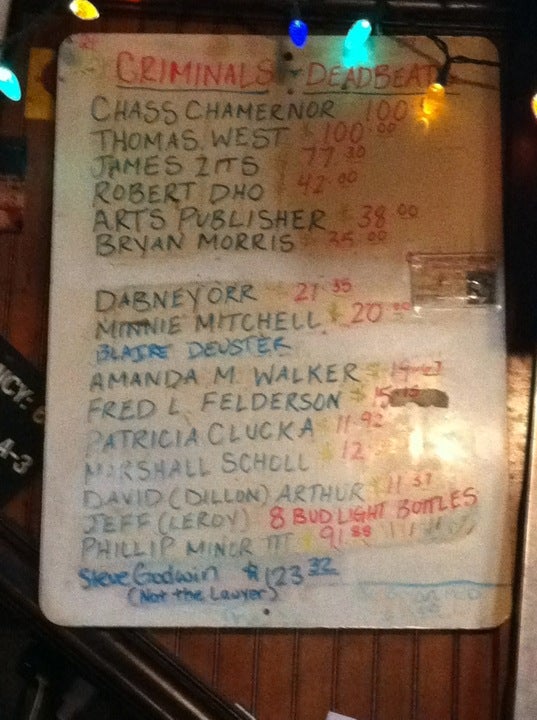 CRIMINALS + DEADBEATS
CHASS CHAMERNOR 100
THOMAS WEST $100.00
JAMES ZITS 77.30
ROBERT DHO $42.00
ARTS PUBLISHER $38.00
BRYAN MORRIS $35.00
DABNEY ORR $21.35
MINNIE MITCHELL $20.00
BLAIRE DEUSTER
AMANDA M. WALKER $19.67
FRED L. FELDERSON $15
PATRICIA CLUCKA $11.92
MARSHALL SCHOLL $12.
DAVID (DILLON) ARTHUR $11.37
JEFF (LEROY) 8 BUD LIGHT BOTTLES
PHILLIP MINOR III $91.88
Steve Godwin $123.32
(Not the Lawyer)
CY:
4-3